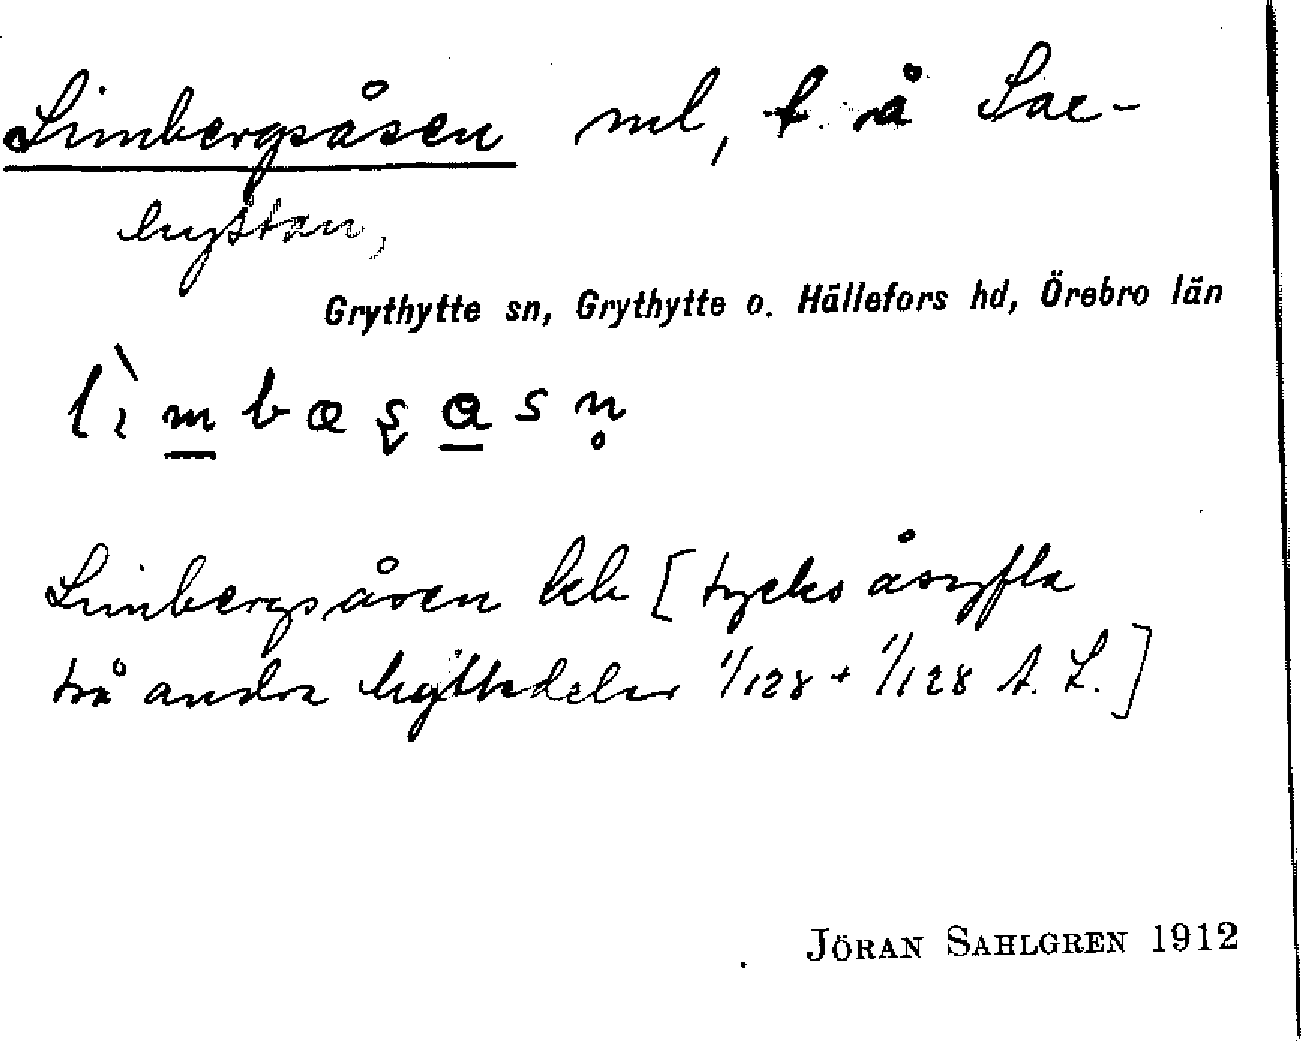 Limbergsåsen ml, t. å Sax-
hyttan,
Grythytte sn, Grythytte o. Hällefors hd, Örebro län
Limbergsåsen kb [tycks åsyfta
två andra hyttedelar 1/128 + 1/128 A. L.]
JÖRAN SAHLGREN 1912